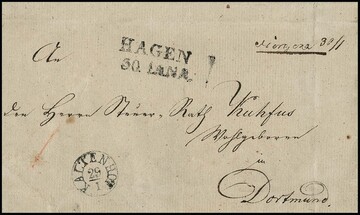 HAGEN
30. JANR.
An
den Herrn Steuer-Rath Kuhfus
Wohlgeboren
in
Dortmund.
29
1